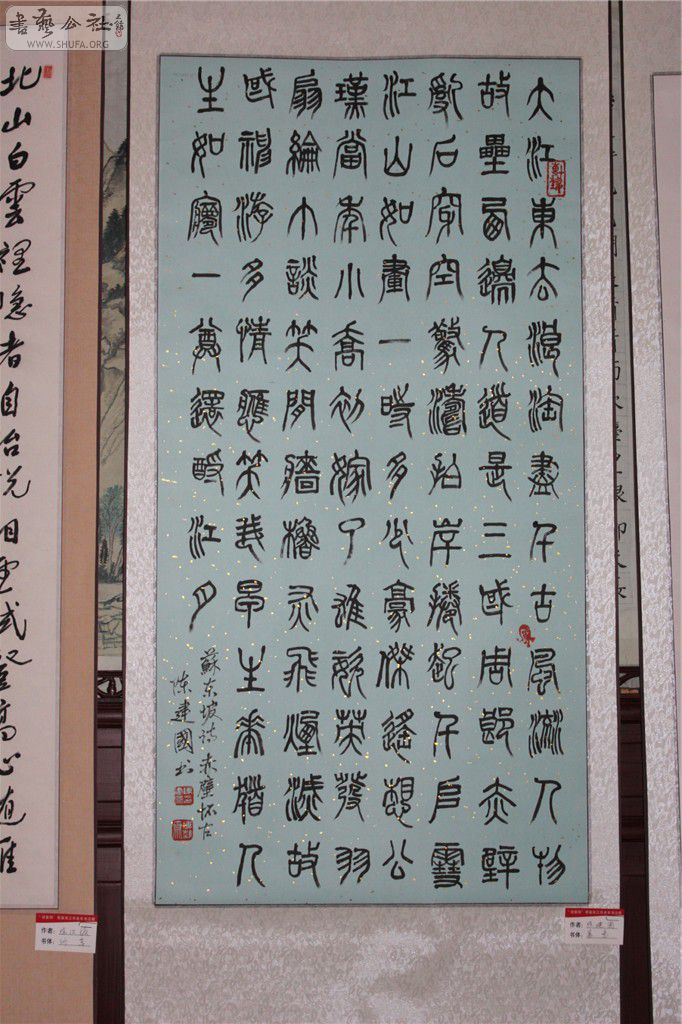 書藝公社
WWW.SHUFA.ORG
大江東去浪淘盡千古風流人物
故壘西邊人道是三國周郎赤壁
亂石穿空驚濤拍岸捲起千戶雪
江山如畫一時多少豪傑遙想公
瑾當年小喬初嫁了雄姿英發羽
扇綸巾談笑間牆櫓灰飛煙滅故
國神游多情應笑我早生華髮人
生如夢一尊還酹江月
蘇东坡詩赤壁怀古
陳建國书
北山白雲裡隐者自怡悦相望試登高心随雁
作者:
书体:
作者:
书体: